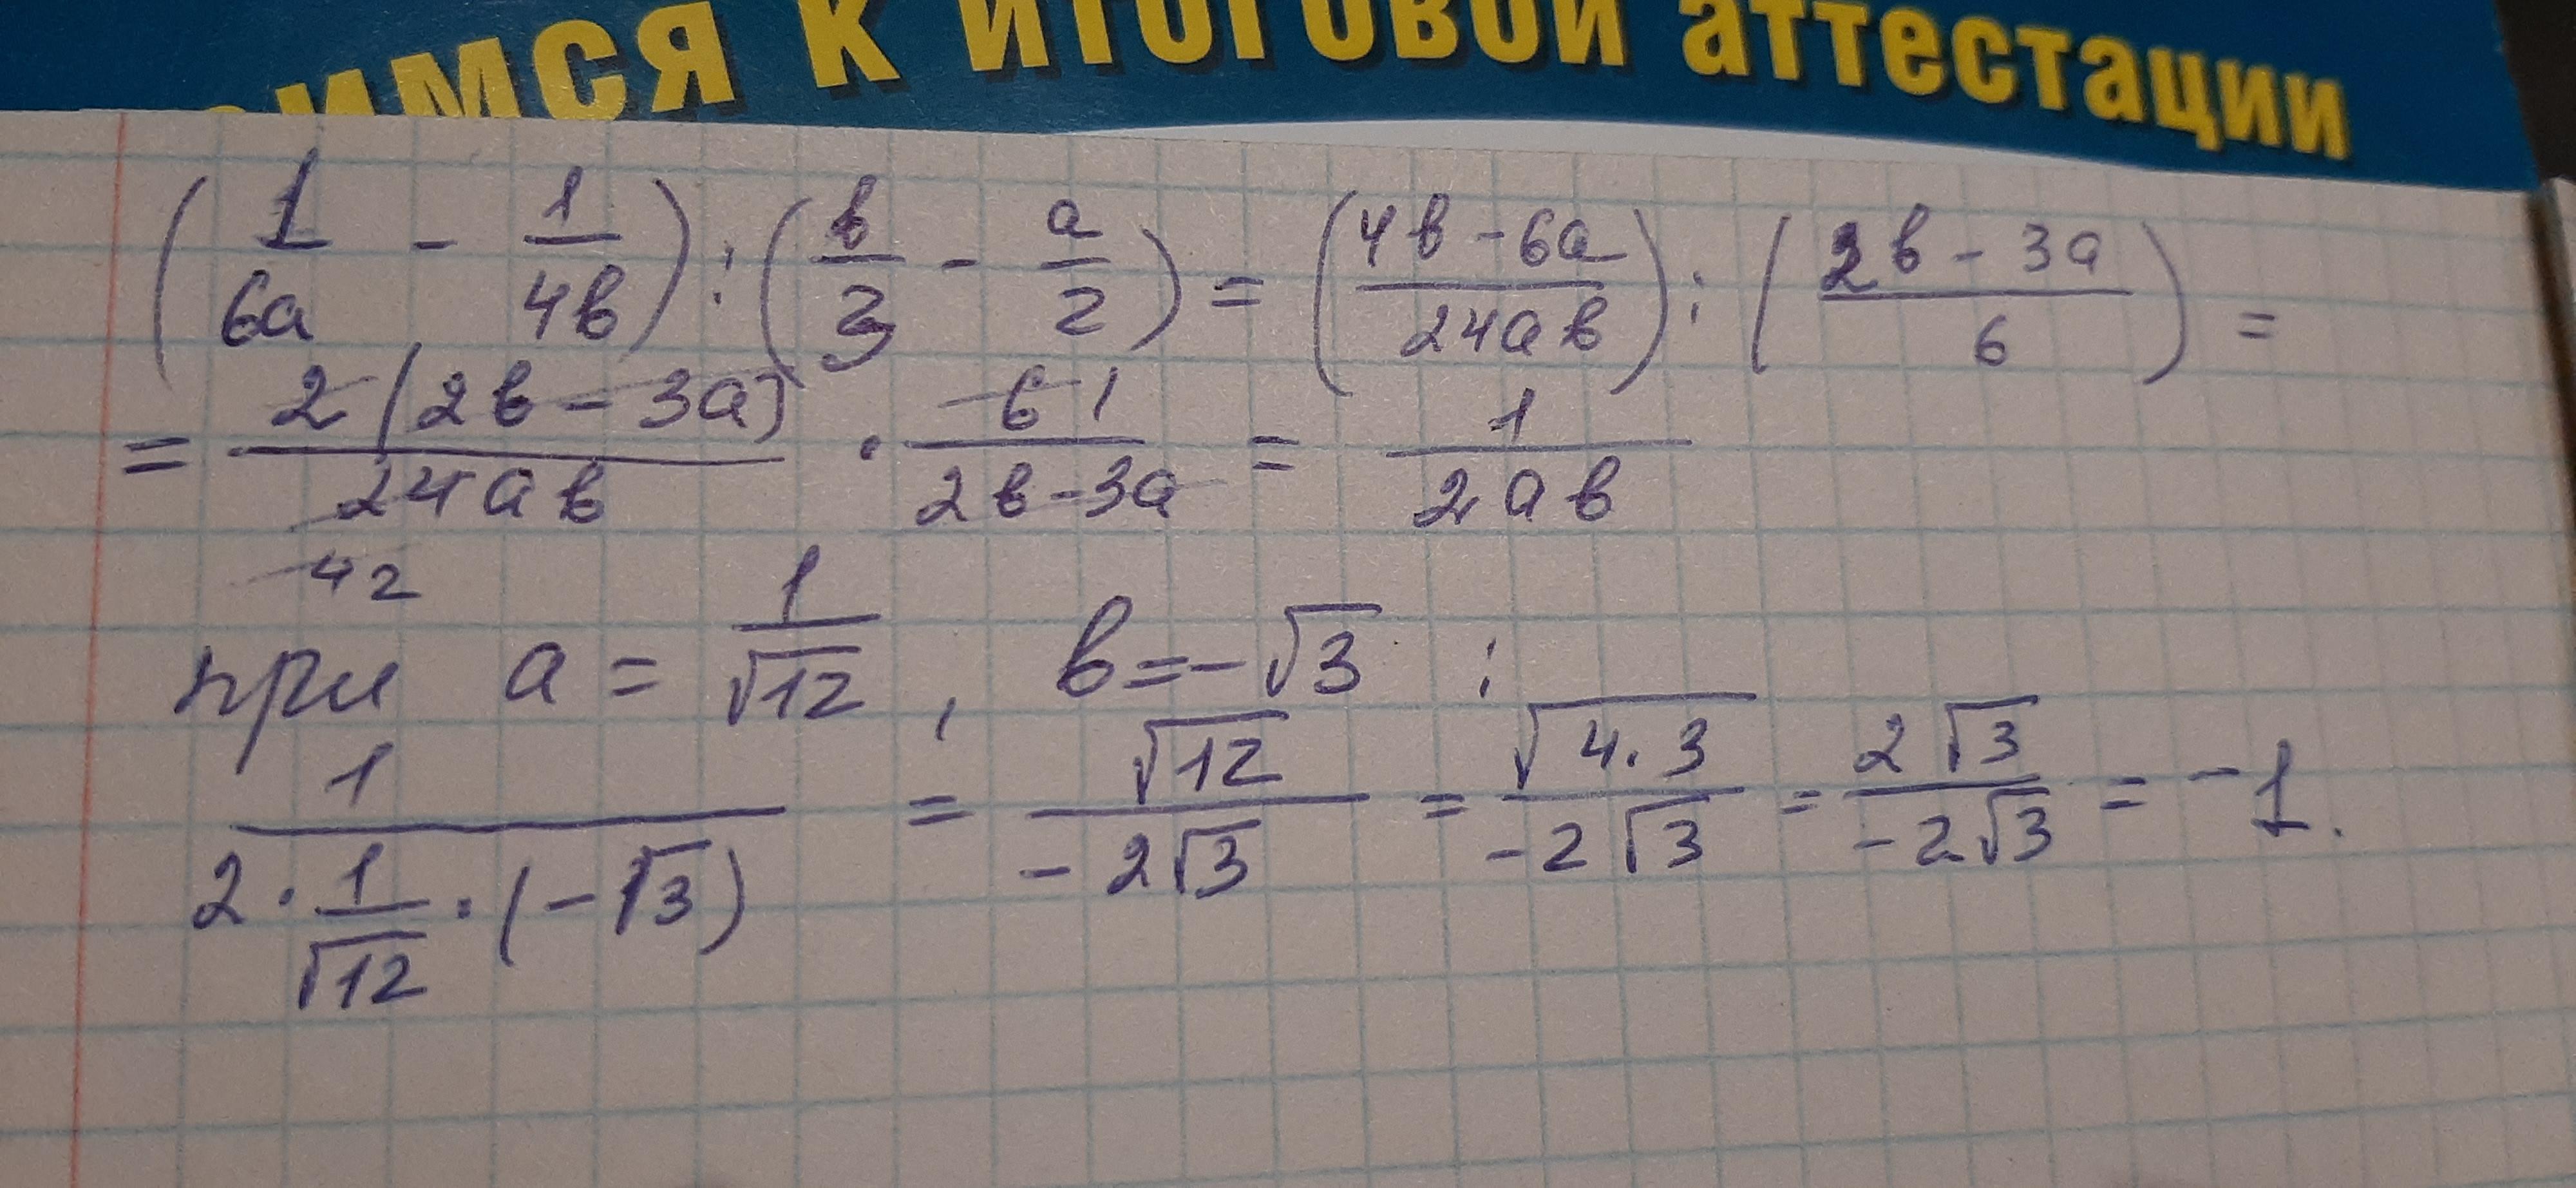 имся к итоговой аттестации
(1/6a - 1/4в) : (в/3 - a/2) = (4в - 6a/24aв) : (2в - 3a/6) =
= 2(2в - 3a)/24aв · 6 1/2в - 3a = 1/2aв
4 2
при a = 1/√12, в = -√3 :
1/2 · 1/√12 · (-√3) = √12/-2√3 = √4·3/-2√3 = 2√3/-2√3 = -1.